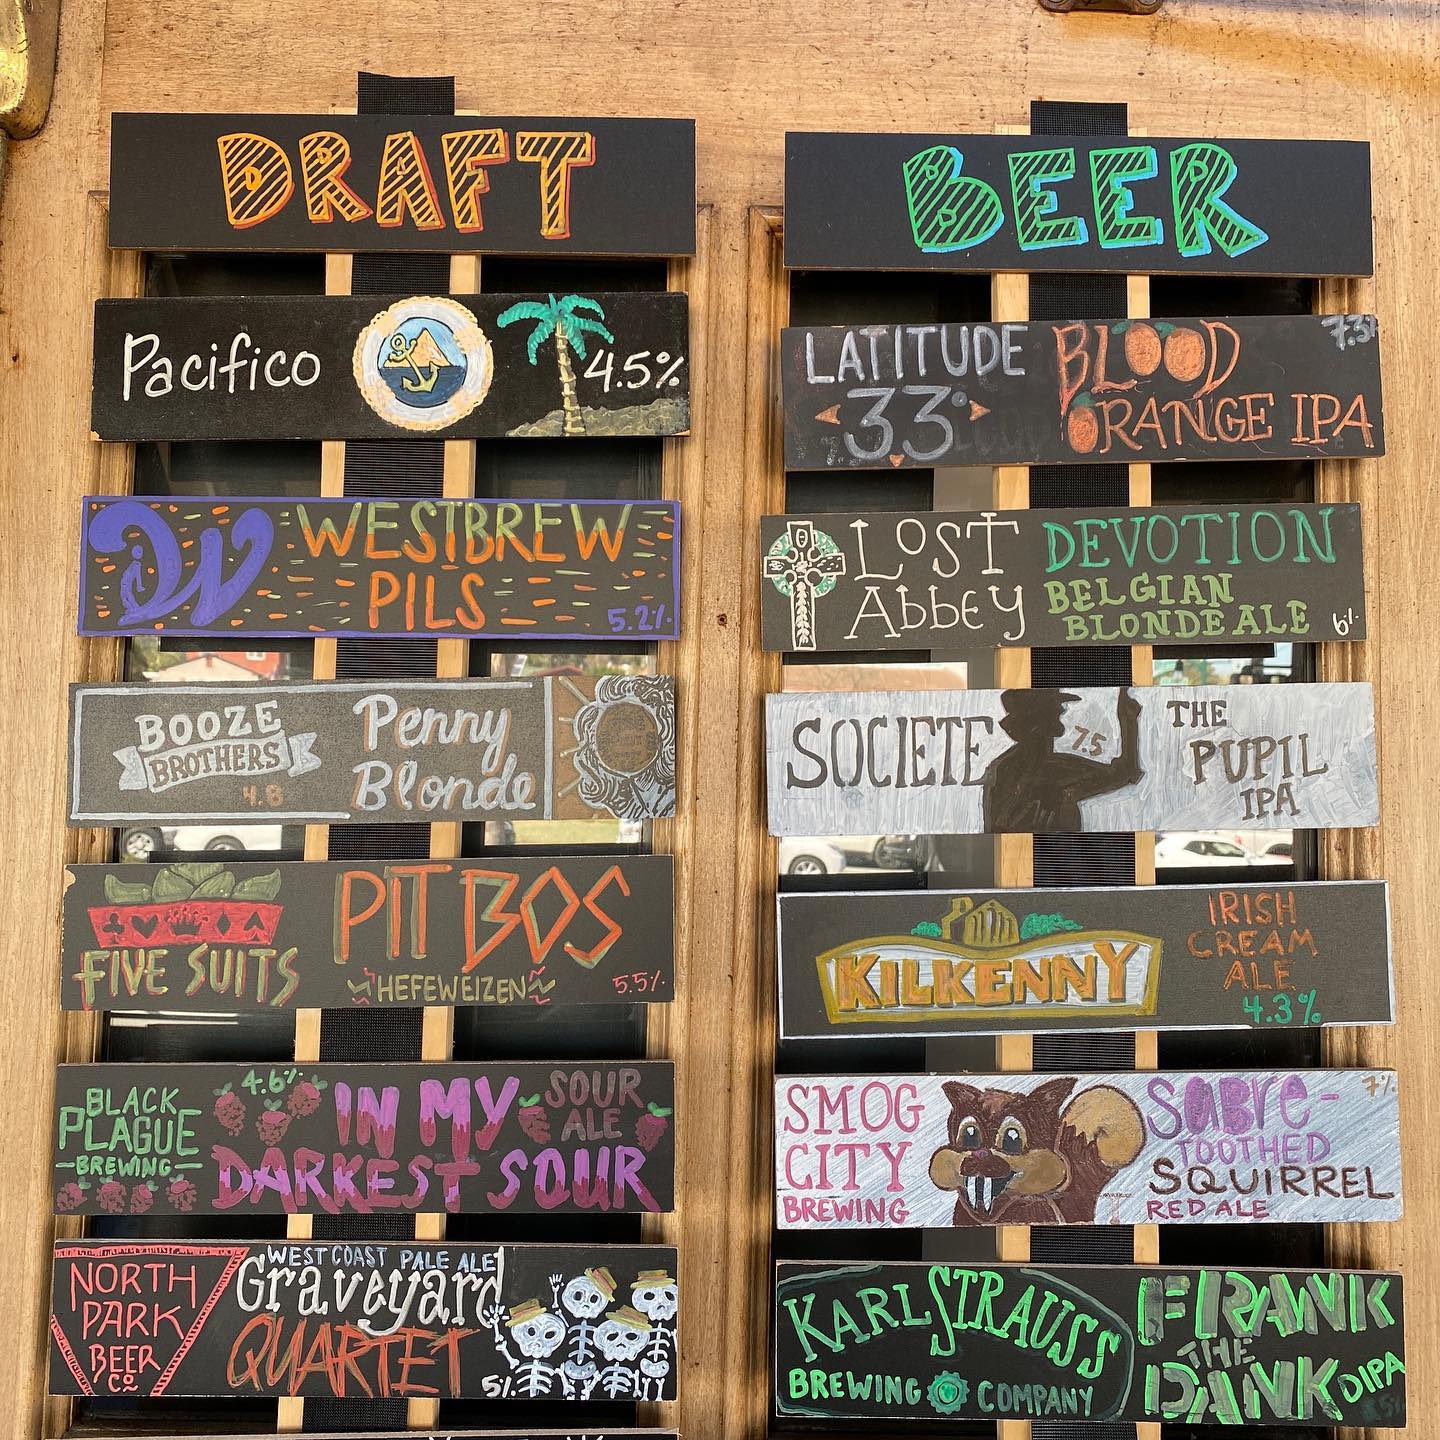 DRAFT
Pacifico 4.5%
W WESTBREW
PILS
5.2%
BOOZE
BROTHERS
4.8
Penny
Blonde
FIVE SUITS
PIT BOS
HEFEWEIZEN
5.5%
BLACK
PLAGUE
-BREWING-
4.6%
IN MY
DARKEST SOUR
SOUR
ALE
NORTH
PARK
BEER
CO
WEST COAST PALE ALE
Graveyard
QUARTET
5%
BEER
LATITUDE
33°
BLOOD
ORANGE IPA
7.3%
LOST
AbbEY
DEVOTION
BELGIAN
BLONDE ALE
6%
SOCIETE
7.5
THE
PUPIL
IPA
KILKENNY
IRISH
CREAM
ALE
4.3%
SMOG
CITY
BREWING
SABre-
TOOTHED
SQUIRREL
RED ALE
7%
KARL STRAUSS
BREWING COMPANY
FRANK
THE
DANK
DIPA